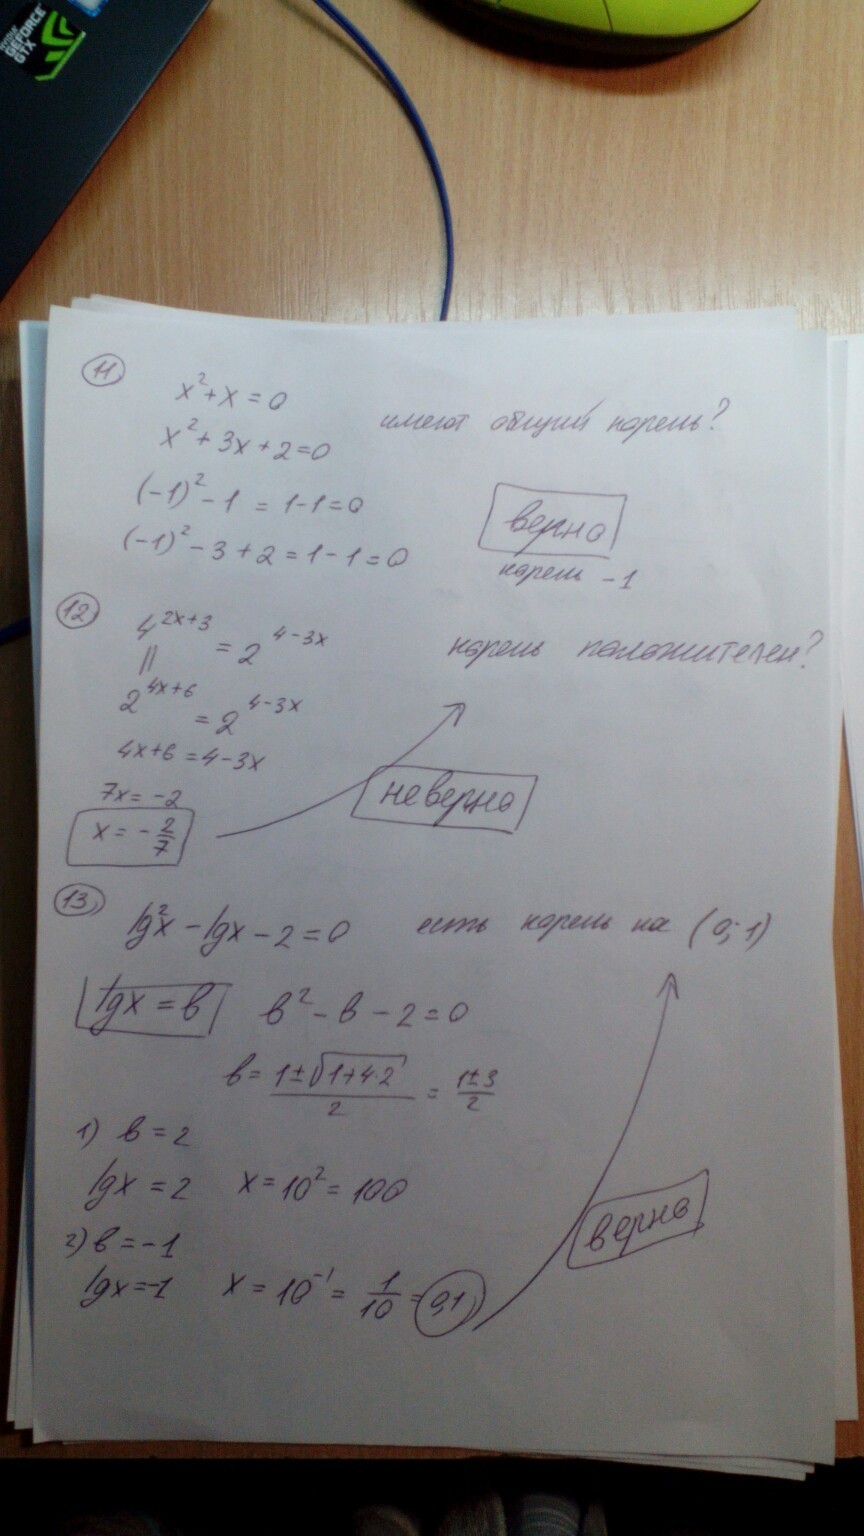 NVIDIA
GEFORCE
GTX
11
x²+x=0
x²+3x+2=0
имеют общий корень?
(-1)²-1 = 1-1=0
(-1)²-3+2=1-1=0
верно
корень -1
12
4^{2x+3} = 2^{4-3x}
корень положителен?
||
2^{4x+6} = 2^{4-3x}
4x+6=4-3x
7x=-2
x = -2/7
неверно
13
lg²x - lgx - 2 = 0 есть корень на (0;1)
lgx = b b² - b - 2 = 0
b = (1±√(1+4·2))/2 = (1±3)/2
1) b = 2
lgx = 2 x = 10² = 100
2) b = -1
lgx=-1 x = 10⁻¹ = 1/10 = 0,1
верно